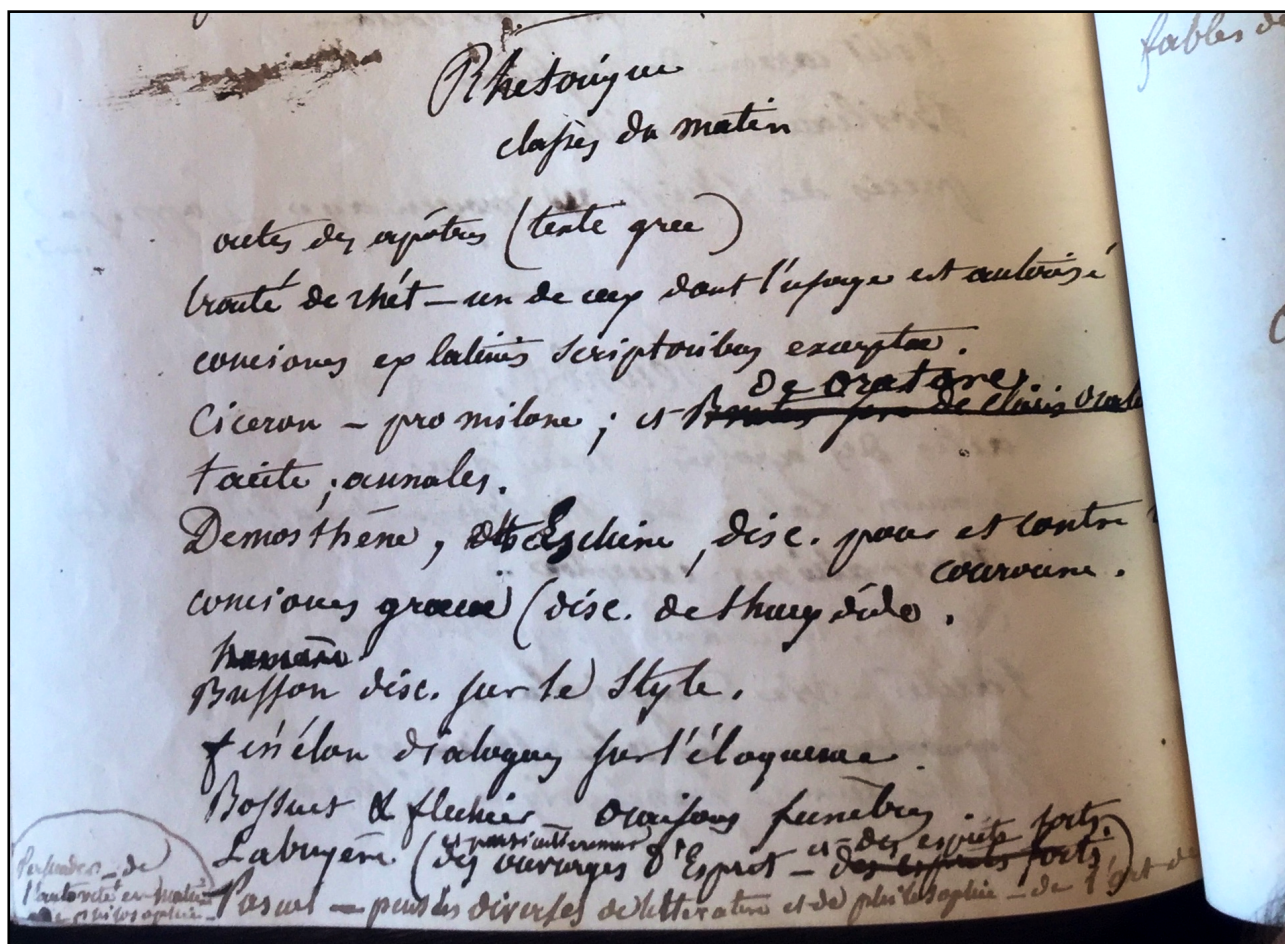 Rhetorique
classes du matin
actes des apôtres (texte grec)
traité de rhét – un de ceux dont l'usage est autorisé
conciones ex latinis scriptoribus excerptae.
de oratore.
Ciceron – pro milone ; et Brutus de claris orato
tacite, annales.
Demosthène, Eschine, disc. pour et contre
couronne.
conciones graecae (disc. de thucydide.
Buffon disc. sur le Style.
fénélon dialogues sur l'éloquence.
Bossuet & flechier – oraisons funèbres
et particulièrement et – des esprits forts.
Labruyère (des ouvrages d'Esprit – des esprits forts)
Pascal – pensées diverses de littérature et de philosophie – de l'art de
Persuader – de
l'autorité en matière
de philosophie –
fables de